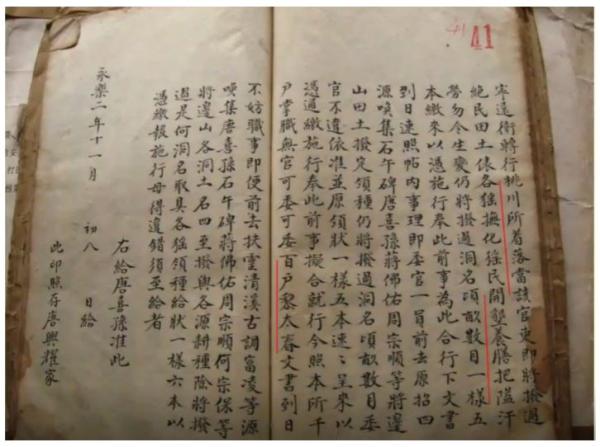 41
41
寧遠衛轉行桃川所着落當該官吏即將撥過
絕民田土俵各猺撫化猺民開墾養膳把隘汗
勞勿令生變仍將撥過洞名項畝數目一樣五
本繳來以憑施行奉此前事為此合行下文書
到日速照帖內事理即委官一員前去原招四
源喚集石午碑唐喜孫蔣佛佑周宗順等將邊
山田土撥定領種仍將撥過洞名頃畝數目委
官不違依准並原領狀一樣五本速〻呈來以
憑通繳施行奉此前事擬合就行今照本所千
戶掌職無官可委可委百戶黎太春文書到日
不妨職事即便前去扶靈清溪古調富凌等源
喚集唐喜孫石午碑蔣佛佑周宗順何宗保等
將邊山各洞土名四至撥與各源耕種除將撥
過是何洞名取具各猺領種給狀一樣六本以
憑繳報施行毋得違錯須至給者
右給唐喜孫准此
永樂二年十一月 初八 日給
此印照存唐興耀家